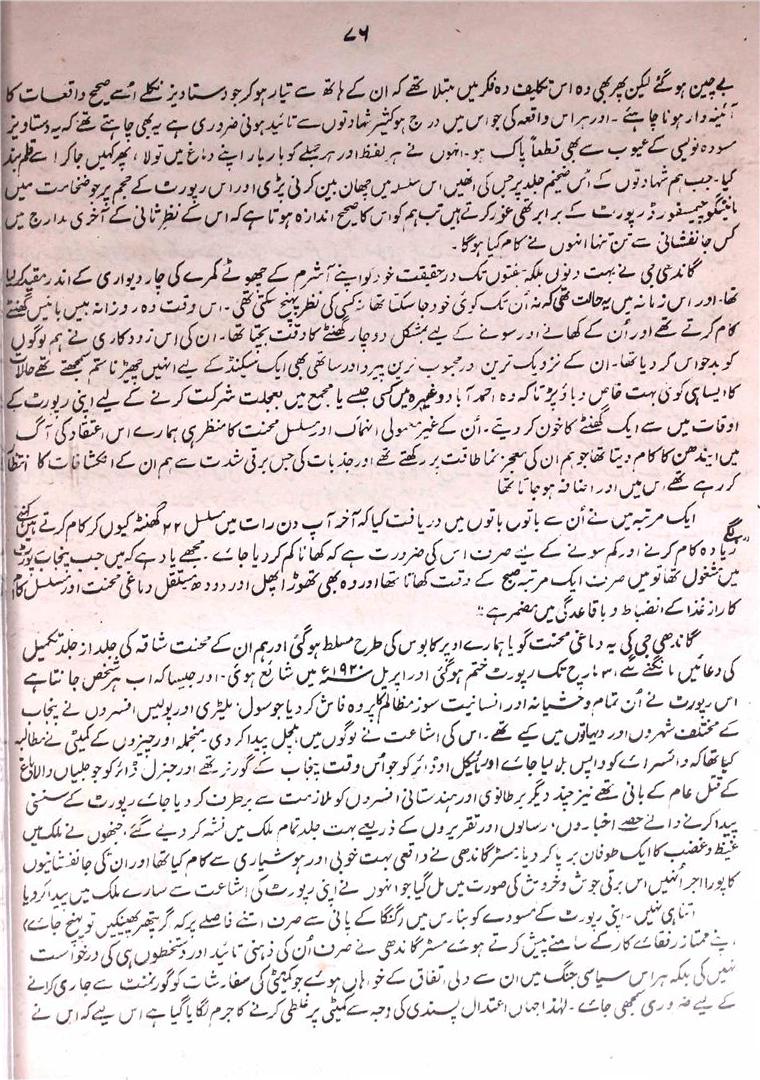 ۷۶
بے چین ہو گئے لیکن پھر بھی وہ اس تکلیف دہ فکر میں مبتلا تھے کہ ان کے ہاتھ سے تیار ہو کر جو دستاویز نکلے اُسے صحیح واقعات کا
آئینہ دار ہونا چاہئے ۔ اور ہر اس واقعہ کی جو اس میں درج ہو کثیر شہادتوں سے تائید ہونی ضروری ہے یہ بھی چاہتے تھے کہ یہ دستاویز
مسودہ نویسی کے عیوب سے بھی قطعاً پاک ہو ۔ انہوں نے ہر لفظ اور ہر جملے کو بار بار اپنے دماغ میں تولا ، پھر کہیں جا کر اسے قلمبند
کیا ۔ جب ہم شہادتوں کے اُس ضخیم جلد پر جس کی انھیں اس سلسلہ میں چھان بین کرنی پڑی اور اس رپورٹ کے حجم پر جو ضخامت میں
مانٹیگو چیمسفورڈ رپورٹ کے برابر تھی غور کرتے ہیں تب ہم کو اس کا صحیح اندازہ ہوتا ہے کہ اس کے نظر ثانی کے آخری مدارج میں
کس جانفشانی سے تن تنہا انہوں نے کام کیا ہوگا ۔
گاندھی جی نے بہت دنوں بلکہ ہفتوں تک درحقیقت خود کو اپنے آشرم کے چھوٹے کمرے کی چار دیواری کے اندر مقید کر لیا
تھا ۔ اور اس زمانہ میں یہ حالت تھی کہ نہ اُن تک کوئی خود جا سکتا تھا نہ کسی کی نظر پہنچ سکتی تھی ۔ اس وقت وہ روزانہ بیس بائیس گھنٹے
کام کرتے تھے اور اُن کے کھانے اور سونے کے لیے بمشکل دو چار گھنٹے کا وقت بچتا تھا ۔ ان کی اس زود کاری نے ہم لوگوں
کو بدحواس کر دیا تھا ۔ ان کے نزدیک ترین اور محبوب ترین پیرو اور ساتھی بھی ایک سیکنڈ کے لیے انہیں چھیڑنا ستم سمجھتے تھے حالات
کا ایسا ہی کوئی بہت خاص دباؤ پڑتا کہ وہ احمد آباد وغیرہ میں کسی جلسے یا مجمع میں بعجلت شرکت کرنے کے لیے اپنی رپورٹ کے
اوقات میں سے ایک گھنٹے کا خون کر دیتے ۔ اُن کے غیر معمولی انہماک اور مسلسل محنت کا منظر ہی ہمارے اس اعتقاد کی آگ
میں ایندھن کا کام دیتا تھا جو ہم ان کی معجز نما طاقت پر رکھتے تھے اور جذبات کی جس برقی شدت سے ہم ان کے انکشافات کا انتظار
کر رہے تھے اس میں اور اضافہ ہو جاتا تھا
ایک مرتبہ میں نے اُن سے باتوں باتوں میں دریافت کیا کہ آخر آپ دن رات میں مسلسل ۲۲ گھنٹہ کیوں کر کام کرتے ہیں کہنے
لگے " زیادہ کام کرنے اور کم سونے کے لیے صرف اس کی ضرورت ہے کہ کھانا کم کر دیا جائے ۔ مجھے یاد ہے کہ میں جب پنجاب رپورٹ
میں مشغول تھا تو میں صرف ایک مرتبہ صبح کے وقت کھاتا تھا اور وہ بھی تھوڑا پھل اور دودھ مستقل دماغی محنت اور مسلسل کام
کا راز غذا کے انضباط و باقاعدگی میں مضمر ہے "
گاندھی جی کی یہ دماغی محنت گویا ہمارے اوپر کابوس کی طرح مسلط ہو گئی اور ہم ان کے محنت شاقہ کی جلد از جلد تکمیل
کی دعائیں مانگنے لگے ، ۳ مارچ تک رپورٹ ختم ہو گئی اور اپریل ۱۹۲۰ء میں شائع ہوئی ۔ اور جیسا کہ اب ہر شخص جانتا ہے
اس رپورٹ نے اُن تمام وحشیانہ اور انسانیت سوز مظالم کا پردہ فاش کر دیا جو سول ، ملیٹری اور پولیس افسروں نے پنجاب
کے مختلف شہروں اور دیہاتوں میں کیے تھے ۔ اس کی اشاعت نے لوگوں میں ہلچل پیدا کر دی ۔ منجملہ اور چیزوں کے کمیٹی نے مطالبہ
کیا تھا کہ وائسرائے کو واپس بلایا جائے اور مائیکل اوڈائر کو جو اُس وقت پنجاب کے گورنر تھے اور جنرل ڈائر کو جو جلیاں والا باغ
کے قتل عام کے بانی تھے نیز چند دیگر برطانوی اور ہندستانی افسروں کو ملازمت سے برطرف کر دیا جائے رپورٹ کے سنسنی
پیدا کرنے والے حصے اخباروں ، رسالوں اور تقریروں کے ذریعے بہت جلد تمام ملک میں نشر کر دیے گئے ، جنھوں نے ملک میں
غیظ و غضب کا ایک طوفان برپا کر دیا ۔ مسٹر گاندھی نے واقعی بہت خوبی اور ہوشیاری سے کام کیا تھا اور ان کی جانفشانیوں
کا پورا اجر اُنہیں اس برقی جوش و خروش کی صورت میں مل گیا جو انہوں نے اپنی رپورٹ کی اشاعت سے سارے ملک میں پیدا کر دیا
اتنا ہی نہیں ۔ اپنی رپورٹ کے مسودے کو بنارس میں (گنگا کے پانی سے صرف اتنے فاصلے پر کہ گر پتھر پھینکیں تو پہنچ جائے)
اپنے ممتاز رفقائے کار کے سامنے پیش کرتے ہوئے مسٹر گاندھی نے صرف اُن کی ذہنی تائید اور دستخطوں ہی کی درخواست
نہیں کی بلکہ ہر اس سیاسی جنگ میں ان سے دلی اتفاق کے خواہاں ہوئے جو کمیٹی کی سفارشات کو گورنمنٹ سے جاری کرانے
کے لیے ضروری سمجھی جائے ۔ لہٰذا جہاں اعتدال پسندی کی وجہ سے کمیٹی پر غلطی کرنے کا جرم لگایا گیا ہے اس لیے کہ اس نے